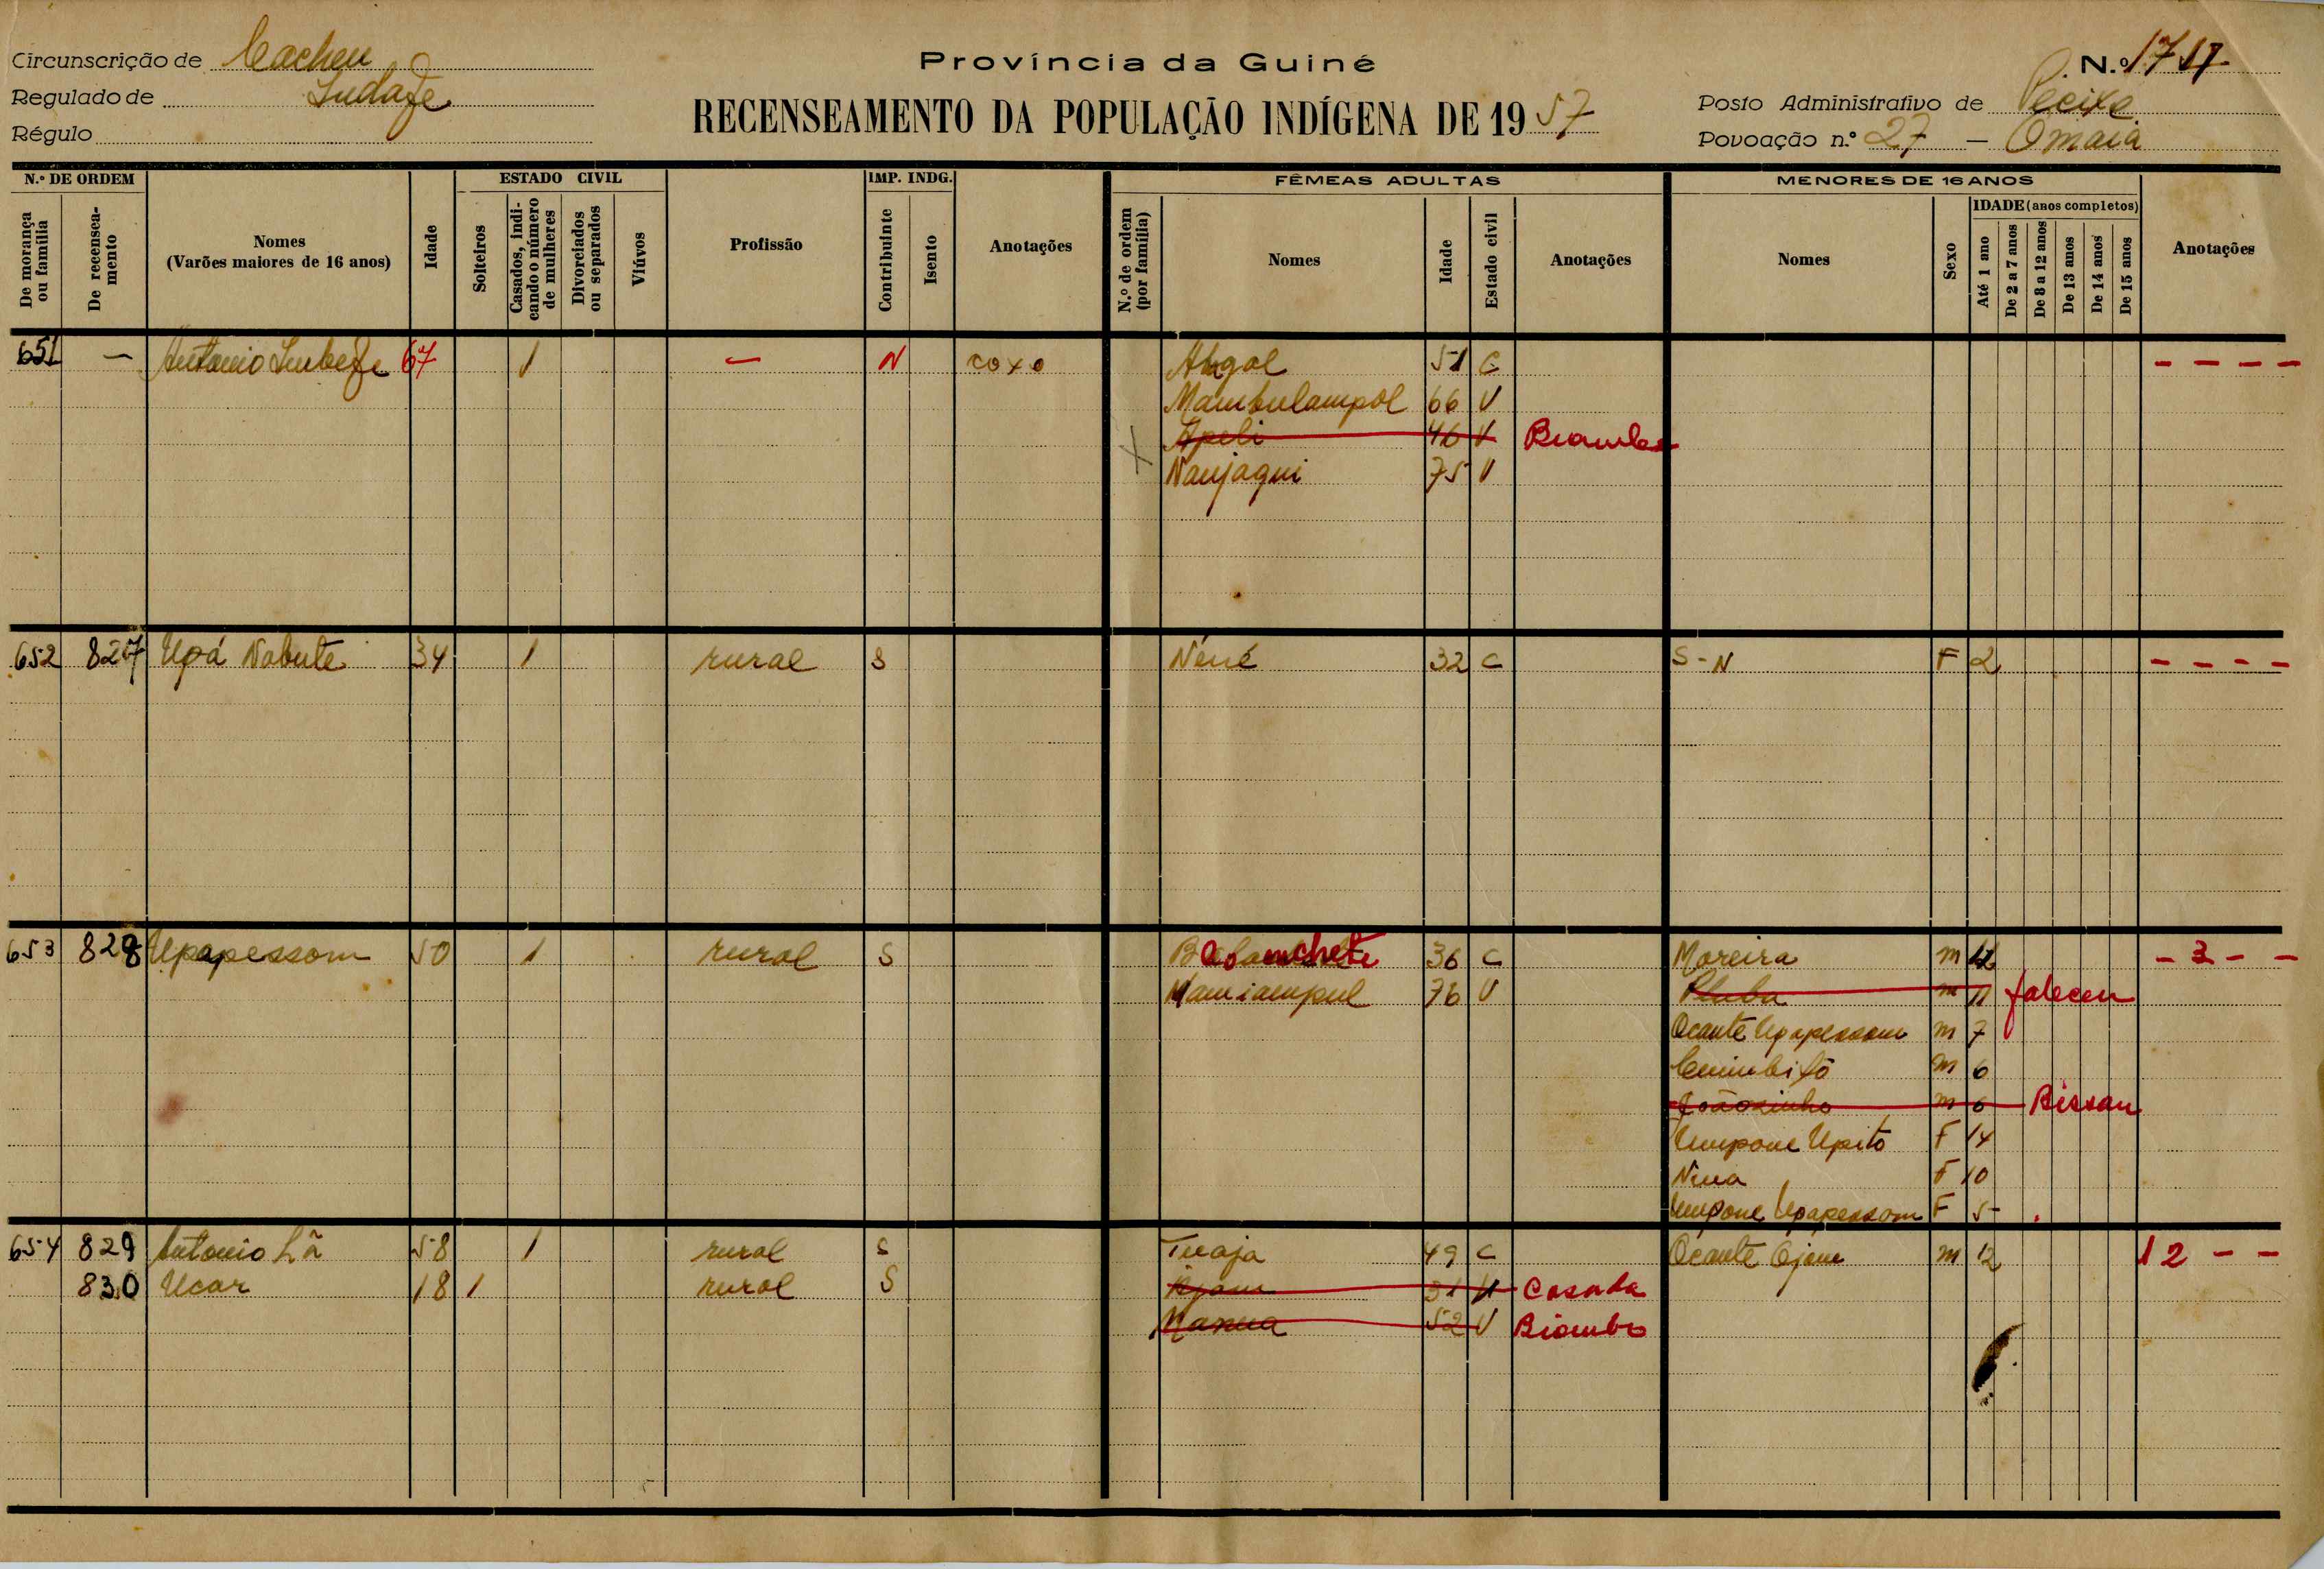 Circunscrição de Cacheu
Regulado de
Régulo
Província da Guiné
RECENSEAMENTO DA POPULAÇÃO INDÍGENA DE 1957
N.º 1717
Posto Administrativo de Pecixe
Povoação n.º 27 — Omaia
N.º DE ORDEM ESTADO CIVIL IMP. INDG. FÊMEAS ADULTAS MENORES DE 16 ANOS
De morança ou família
De recenseamento
Nomes
(Varões maiores de 16 anos)
Idade
Solteiros
Casados, indicando o número de mulheres
Divorciados ou separados
Viúvos
Profissão
Contribuinte
Isento
Anotações
N.º de ordem (por família)
Nomes
Idade
Estado civil
Anotações
Nomes
Sexo
IDADE (anos completos)
Até 1 ano
De 2 a 7 anos
De 8 a 12 anos
De 13 anos
De 14 anos
De 15 anos
Anotações
651 — Antonio 67 1 — N coxo 51 C - - - -
Mambulampol 66 V
Apeli 46 V
Naujaqui 75 V
652 827 Upá Nabute 34 1 rural S Nené 32 C S-N F 2 - - - -
653 828 Upapessom 50 1 rural S 36 C Moreira m - 3 - -
Mamiampul 76 V m 11 faleceu
Ocante Upapessom m 7
m 6
Joãosinho m 6 Bissau
Umpone Upito F 14
Nina F 10
Umpone Upapessom F 5
654 829 Antonio Lã 58 1 rural S Tuaja 49 C Ocante Ojam m 12 12 - -
830 Ucar 18 1 rural S Casada
52 V Biombo